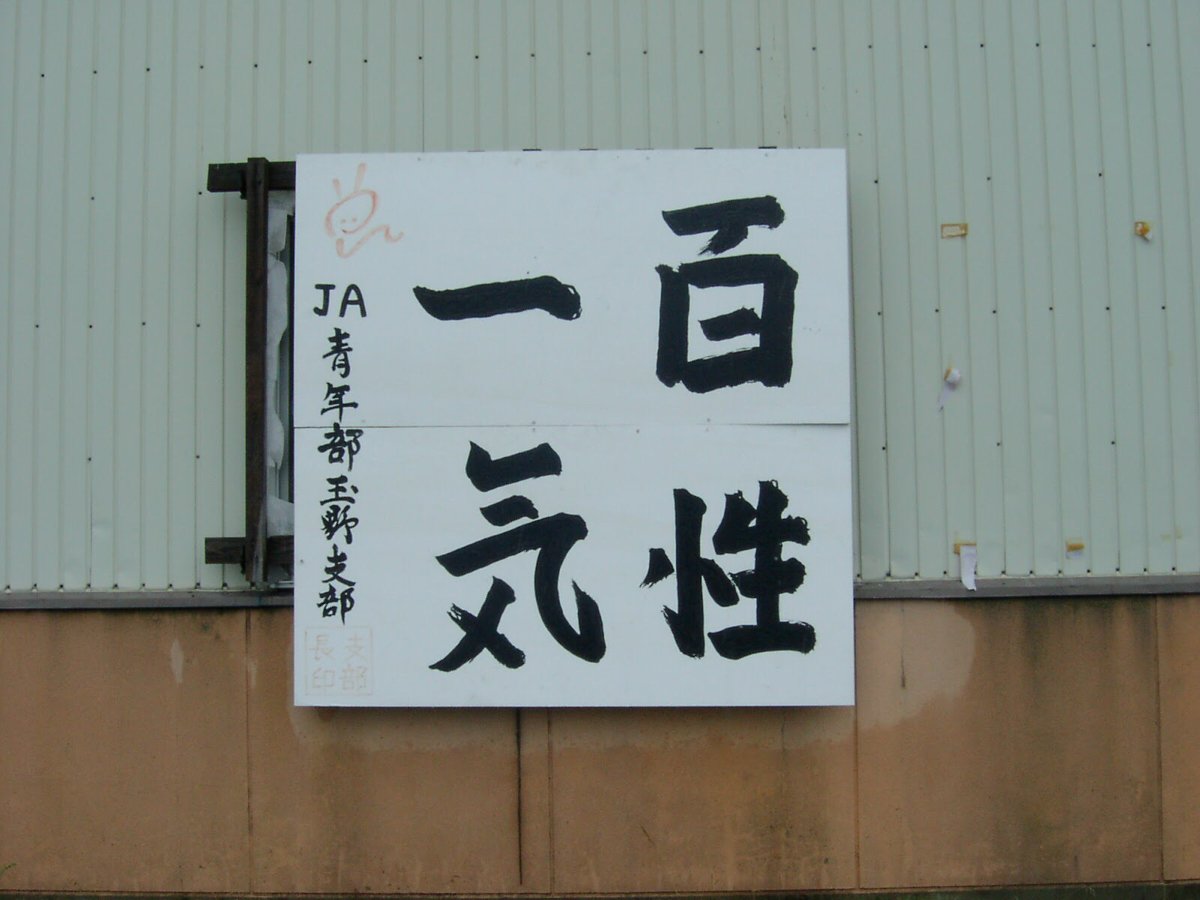 百性
一気
JA青年部玉野支部
支部
長印